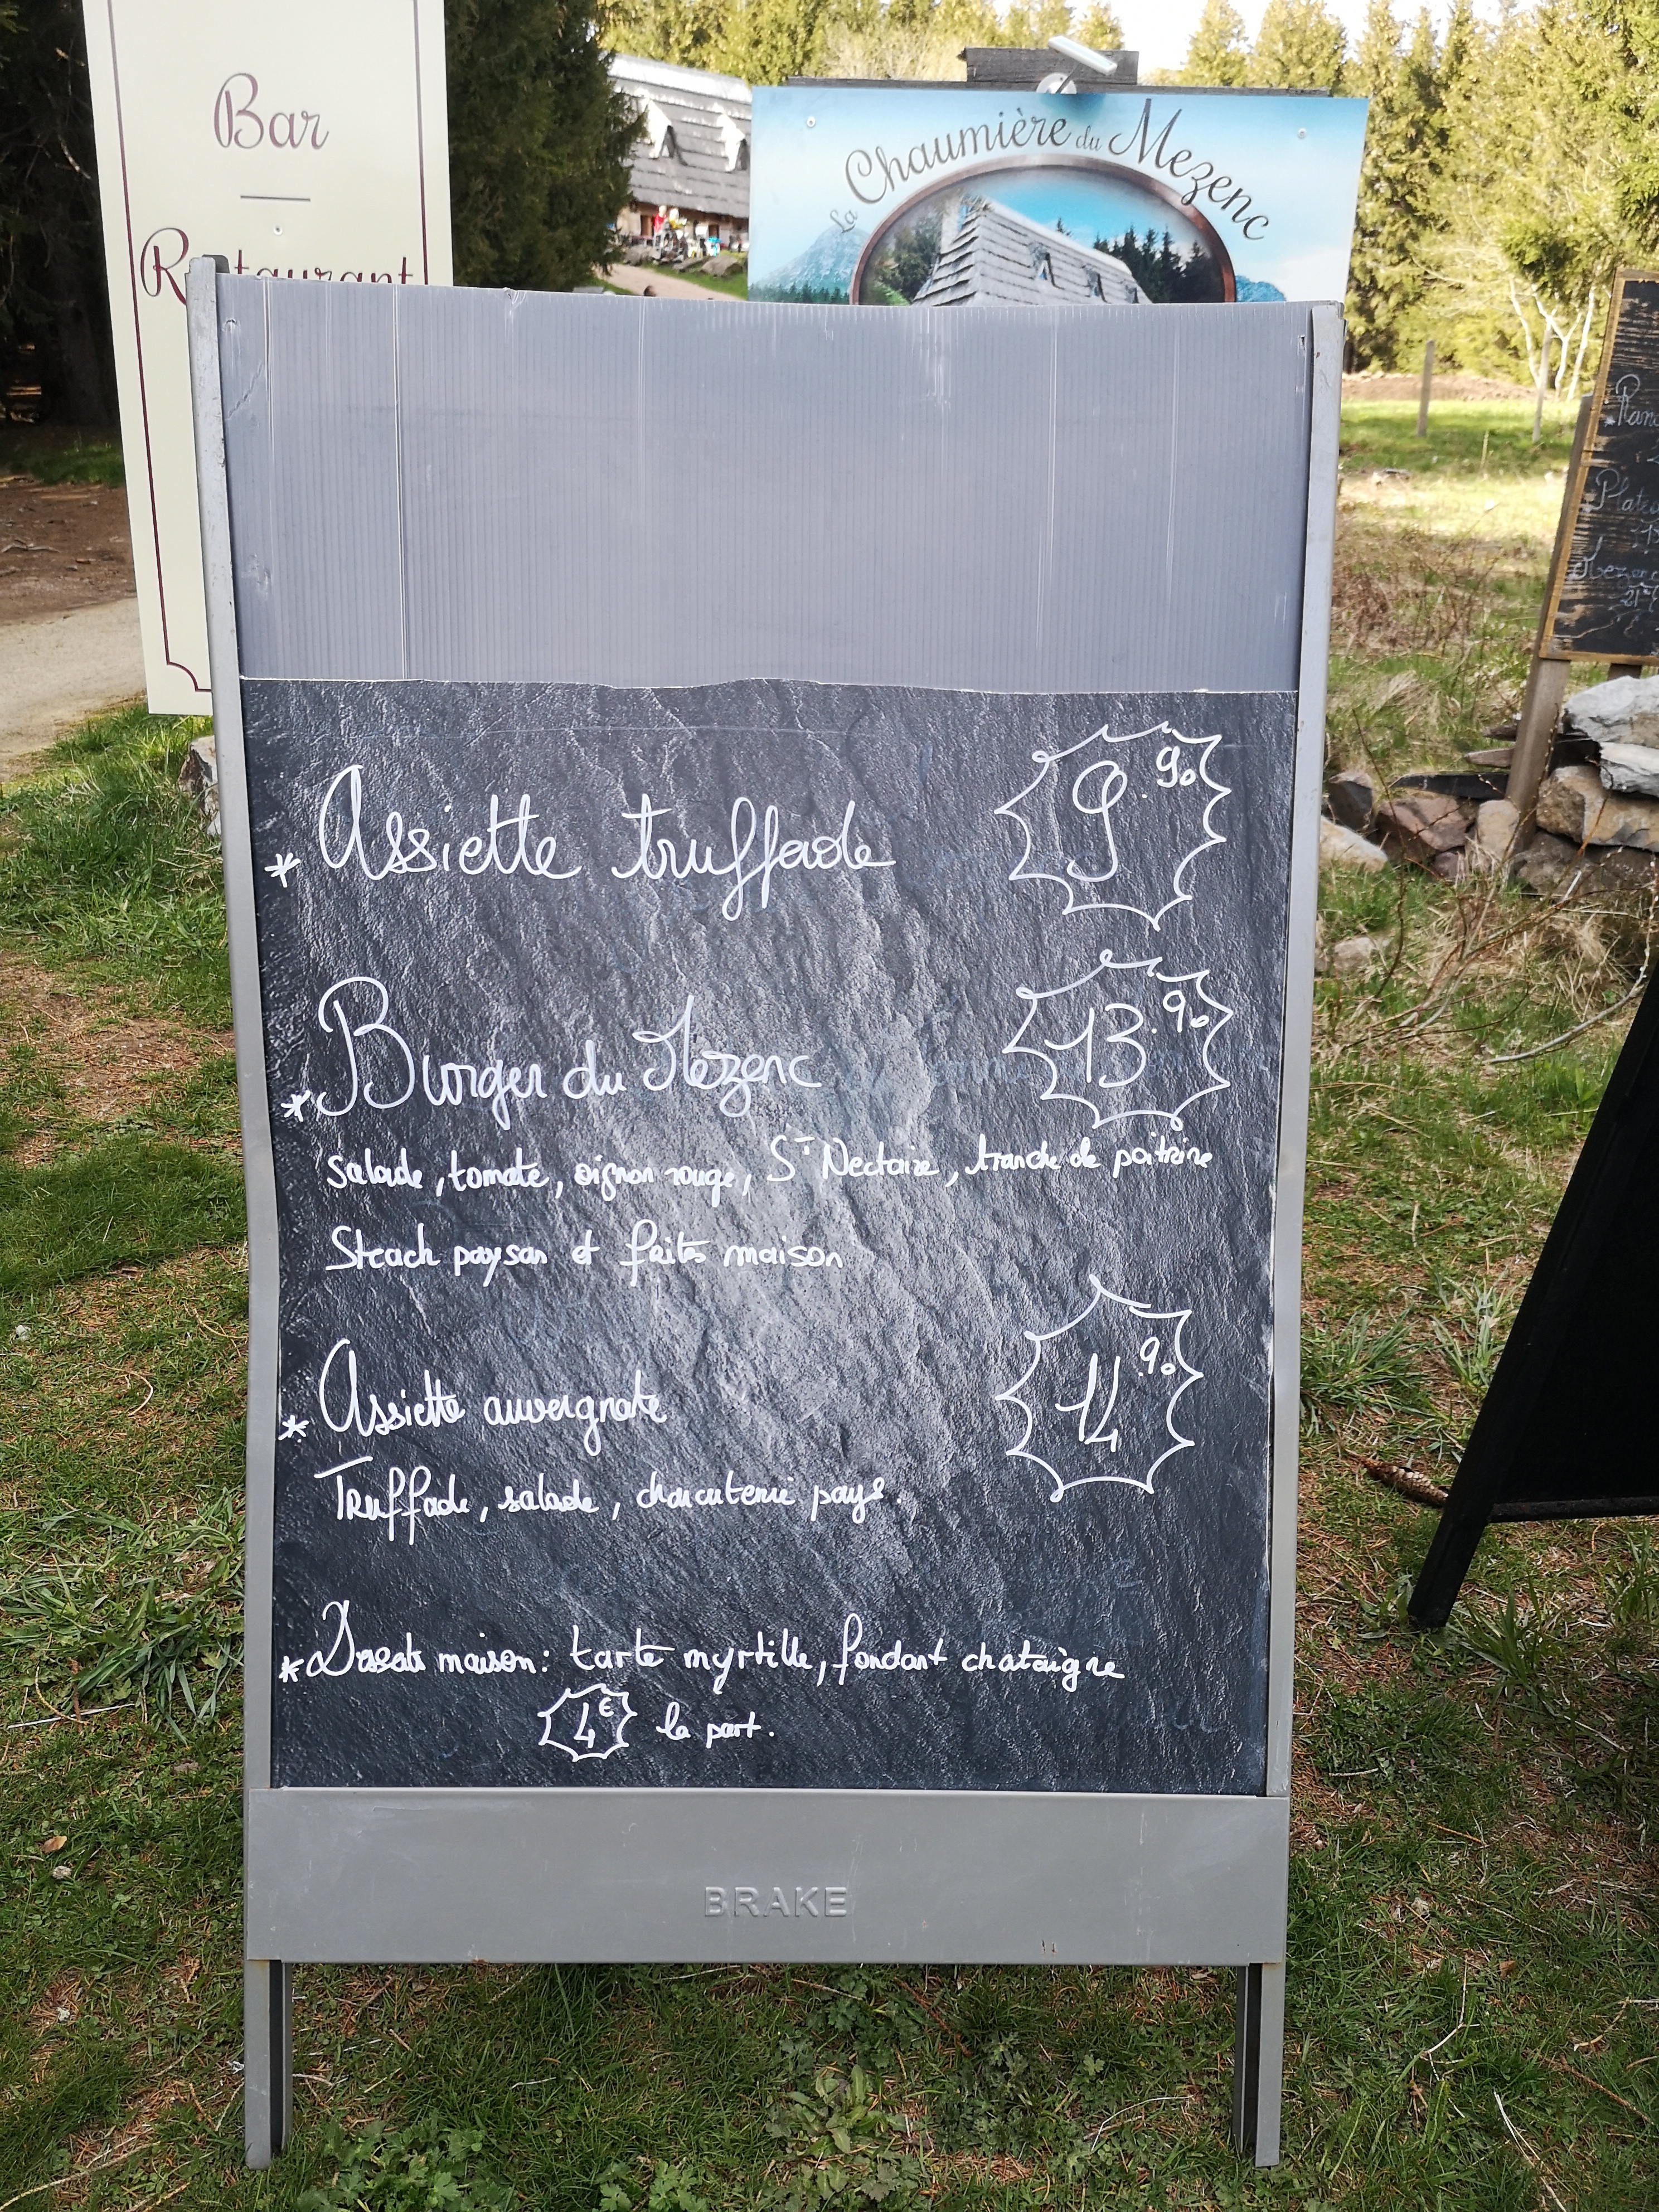 Bar
Restaurant
La Chaumière du Mezenc
* Assiette truffade 9.90
* Burger du Mezenc 13.90
salade, tomate, oignon rouge, St Nectaire, tranche de poitrine
Steach paysan et frites maison
* Assiette auvergnate 14.90
Truffade, salade, charcuterie pays.
* Desserts maison: tarte myrtille, fondant chataigne
4€ la part.
BRAKE